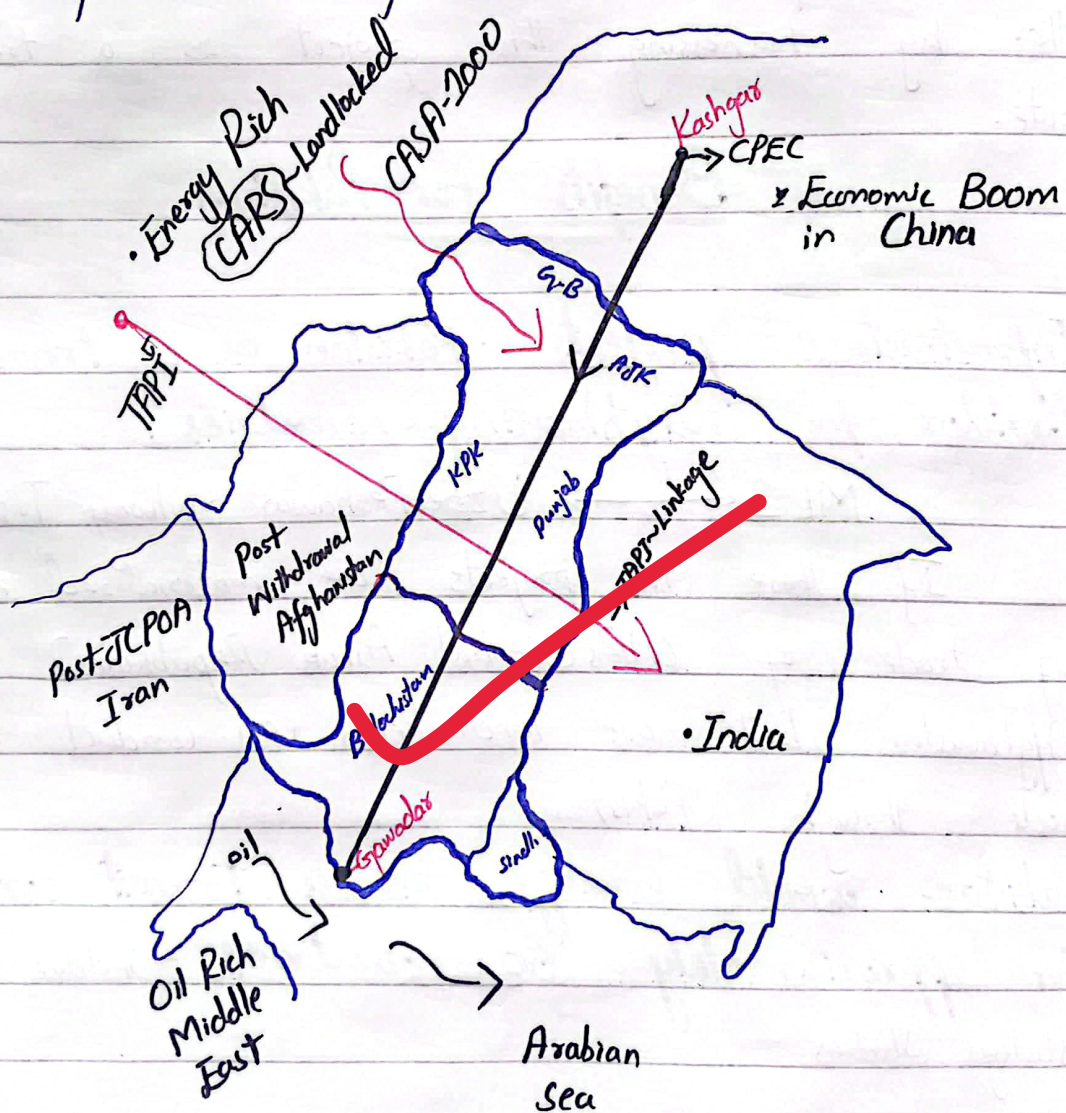 • Energy Rich
CARS ~ Landlocked
CASA-1000
Kashgar
→ CPEC
* Economic Boom
in China
G-B
AJK
TAPI
KPK
Punjab
TAPI~Linkage
Post
Withdrawal
Afghanistan
Post-JCPOA
Iran
Balochistan
• India
Gawadar
Sindh
Oil
Oil Rich
Middle
East
Arabian
Sea